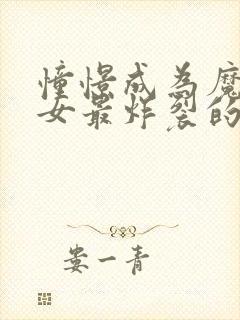 憧憬成为魔
女最炸裂的
娄一青